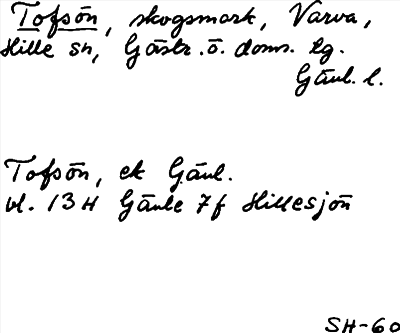 Tofsön, skogsmark, Varva,
Hille sn, Gästr. ö. doms. lg.
Gävl. l.
Tofsön, ek Gävl.
bl. 13H Gävle 7f Hillesjön
SH-60